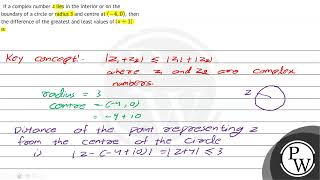 If a complex number z lies in the interior or on the
boundary of a circle or radius 3 and centre at (-4, 0), then
the difference of the greatest and least values of |z + 1|
is
Key concept: |z₁+z₂| ≤ |z₁|+|z₂|
where z₁ and z₂ are complex
numbers.
radius = 3
centre = (-4,0)
= -4+i0
Distance of the point representing z
from the centre of the circle
is |z-(-4+i0)| = |z+4| ≤ 3
PW